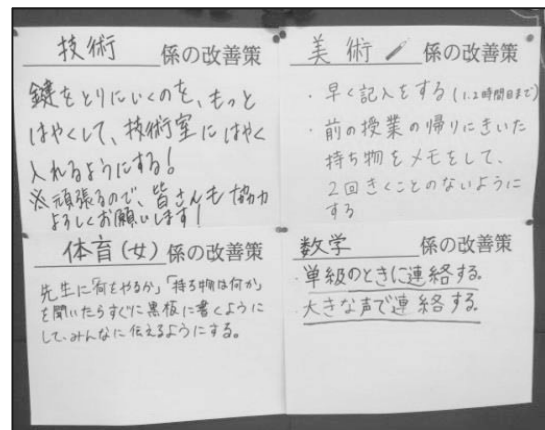 技術 係の改善策
鍵をとりにいくのを、もっと
はやくして、技術室にはやく
入れるようにする!
※頑張るので、皆さんも協力
よろしくお願いします!
美術 係の改善策
・早く記入をする(1.2時間目まで)
・前の授業の帰りにきいた
持ち物をメモをして、
2回きくことのないように
する
体育(女) 係の改善策
先生に「何をやるか」「持ち物は何か」
を聞いたらすぐに黒板に書くように
して、みんなに伝えるようにする。
数学 係の改善策
・単級のときに連絡する。
・大きな声で連絡する。